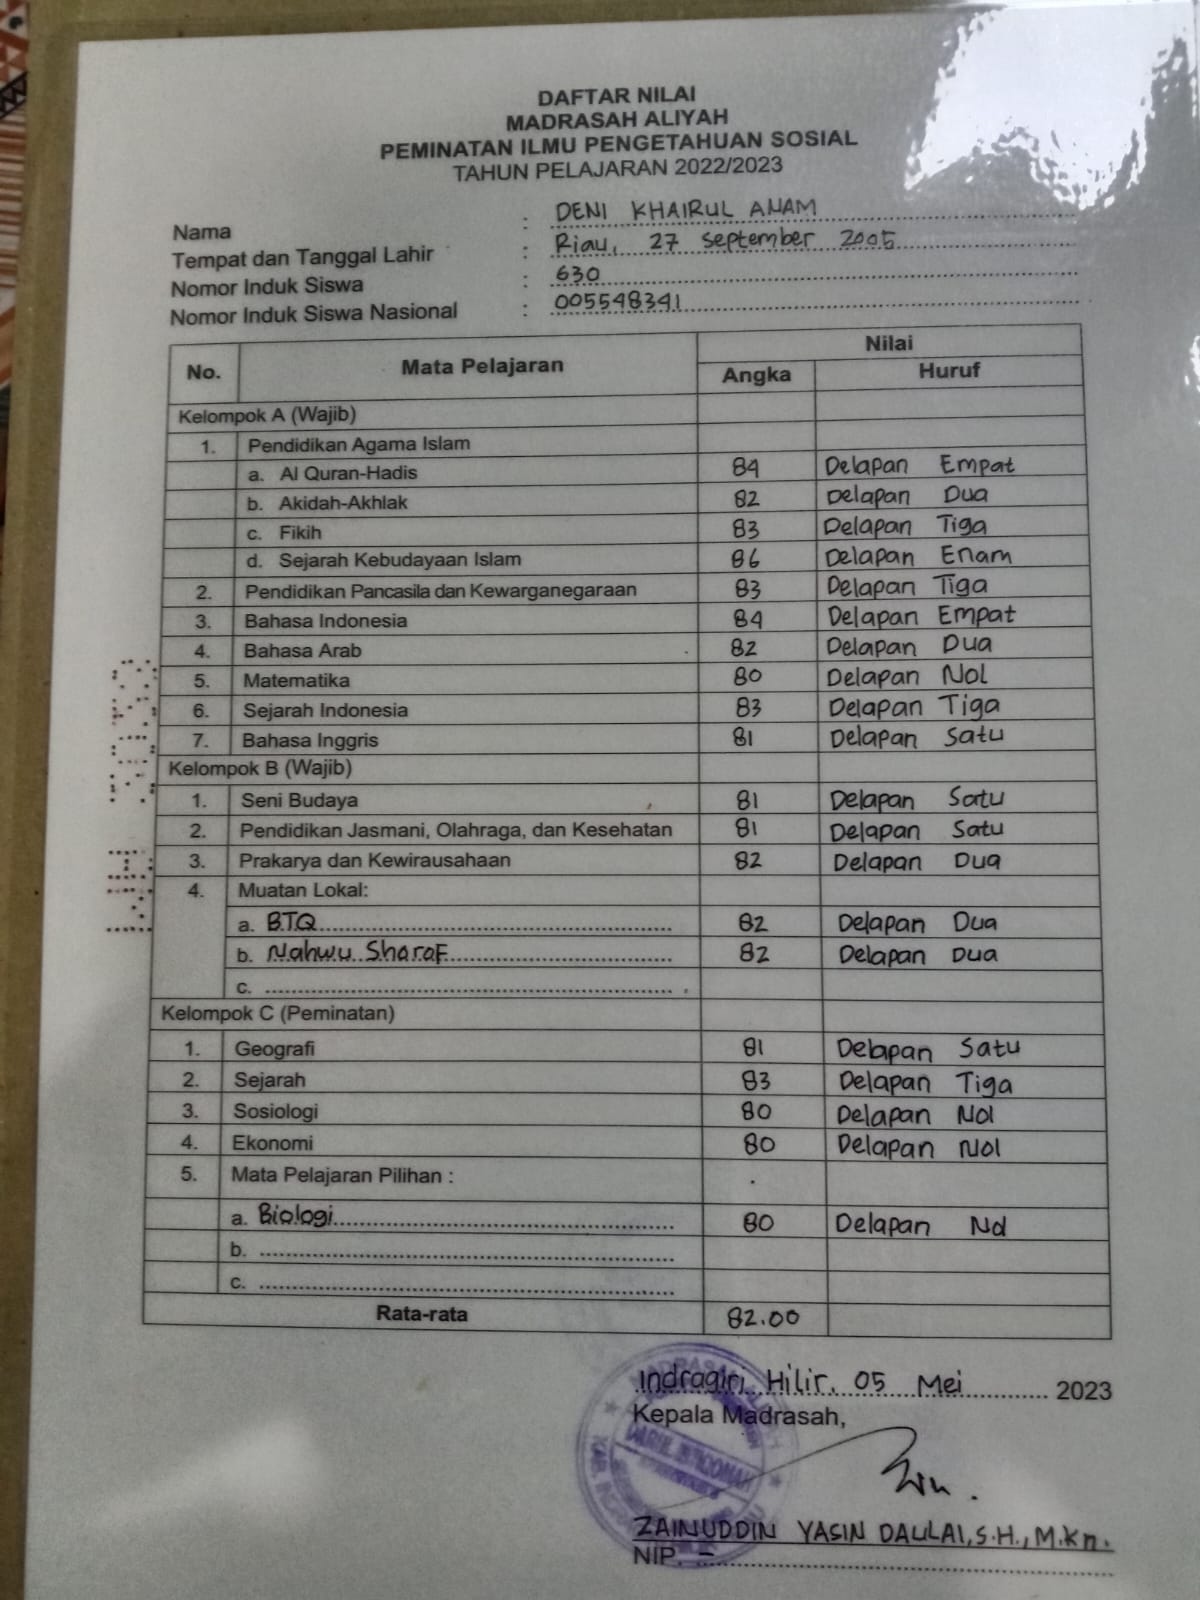 DAFTAR NILAI
MADRASAH ALIYAH
PEMINATAN ILMU PENGETAHUAN SOSIAL
TAHUN PELAJARAN 2022/2023
Nama : DENI KHAIRUL ANAM
Tempat dan Tanggal Lahir : Riau, 27 September 2005
Nomor Induk Siswa : 630
Nomor Induk Siswa Nasional : 005548341
No. Mata Pelajaran Nilai
Angka Huruf
Kelompok A (Wajib)
1. Pendidikan Agama Islam
a. Al Quran-Hadis 84 Delapan Empat
b. Akidah-Akhlak 82 Delapan Dua
c. Fikih 83 Delapan Tiga
d. Sejarah Kebudayaan Islam 86 Delapan Enam
2. Pendidikan Pancasila dan Kewarganegaraan 83 Delapan Tiga
3. Bahasa Indonesia 84 Delapan Empat
4. Bahasa Arab 82 Delapan Dua
5. Matematika 80 Delapan Nol
6. Sejarah Indonesia 83 Delapan Tiga
7. Bahasa Inggris 81 Delapan Satu
Kelompok B (Wajib)
1. Seni Budaya 81 Delapan Satu
2. Pendidikan Jasmani, Olahraga, dan Kesehatan 81 Delapan Satu
3. Prakarya dan Kewirausahaan 82 Delapan Dua
4. Muatan Lokal:
a. BTQ 82 Delapan Dua
b. Nahwu Sharaf 82 Delapan Dua
c.
Kelompok C (Peminatan)
1. Geografi 81 Delapan Satu
2. Sejarah 83 Delapan Tiga
3. Sosiologi 80 Delapan Nol
4. Ekonomi 80 Delapan Nol
5. Mata Pelajaran Pilihan :
a. Biologi 80 Delapan Nol
b.
c.
Rata-rata 82.00
Indragiri Hilir, 05 Mei 2023
Kepala Madrasah,
ZAINUDDIN YASIN DAULAI, S.H., M.Kn.
NIP. -